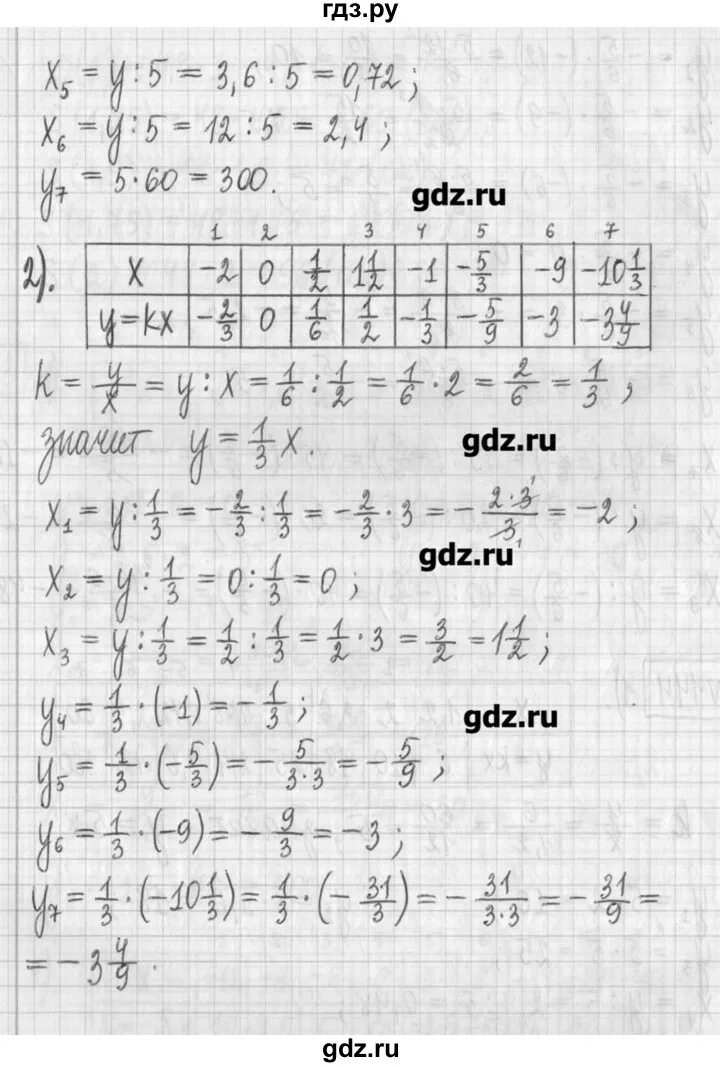 гдз.ру
x₅ = y : 5 = 3,6 : 5 = 0,72 ;
x₆ = y : 5 = 12 : 5 = 2,4 ;
y₇ = 5·60 = 300.
gdz.ru
1 2 3 4 5 6 7
2). x | -2 | 0 | 1/2 | 1 1/2 | -1 | -5/3 | -9 | -10 1/3
y=kx | -2/3 | 0 | 1/6 | 1/2 | -1/3 | -5/9 | -3 | -3 4/9
k = y/x = y : x = 1/6 : 1/2 = 1/6 · 2 = 2/6 = 1/3 ,
значит y = 1/3 x.
gdz.ru
x₁ = y : 1/3 = -2/3 : 1/3 = -2/3 · 3 = - 2·3¹/3₁ = -2 ;
gdz.ru
x₂ = y : 1/3 = 0 : 1/3 = 0 ;
x₃ = y : 1/3 = 1/2 : 1/3 = 1/2 · 3 = 3/2 = 1 1/2 ;
y₄ = 1/3 · (-1) = -1/3 ;
gdz.ru
y₅ = 1/3 · (-5/3) = - 5/3·3 = -5/9 ;
y₆ = 1/3 · (-9) = -9/3 = -3 ;
y₇ = 1/3 · (-10 1/3) = 1/3 · (-31/3) = - 31/3·3 = -31/9 =
= -3 4/9 .
gdz.ru